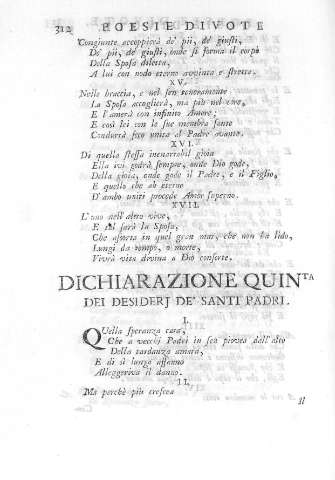 312 POESIE DIVOTE
Congiunte accoppierà de' pii, de' giusti,
De' pii, de' giusti, onde si forma il corpo
Della Sposa diletta,
A lui con nodo eterno avvinta e stretta.
XV.
Nelle braccia, e nel sen teneramente
La Sposa accoglierà, ma più nel core,
E l'amerà con infinito Amore;
E così lei con le sue membra sante
Condurrà seco unita al Padre avante.
XVI.
Di quella stessa inenarrabil gioia
Ella ivi godrà sempre, onde Dio gode,
Della gioia, onde gode il Padre, e il Figlio,
E quello che ab eterno
D'ambo uniti procede Amor superno.
XVII.
L'uno nell'altro vive,
E tal sarà la Sposa,
Che assorta in quel gran mar, che non ha lido,
Lungi da tempo, e morte,
Vivrà vita divina a Dio consorte.
DICHIARAZIONE QUINTA
DEI DESIDERJ DE' SANTI PADRI.
I.
Quella speranza cara,
Che a vecchi Padri in sen piovea dall'alto
Della tardanza amara,
E di sì lungo affanno
Alleggeriva il danno.
II.
Ma perchè più cresceva
Il